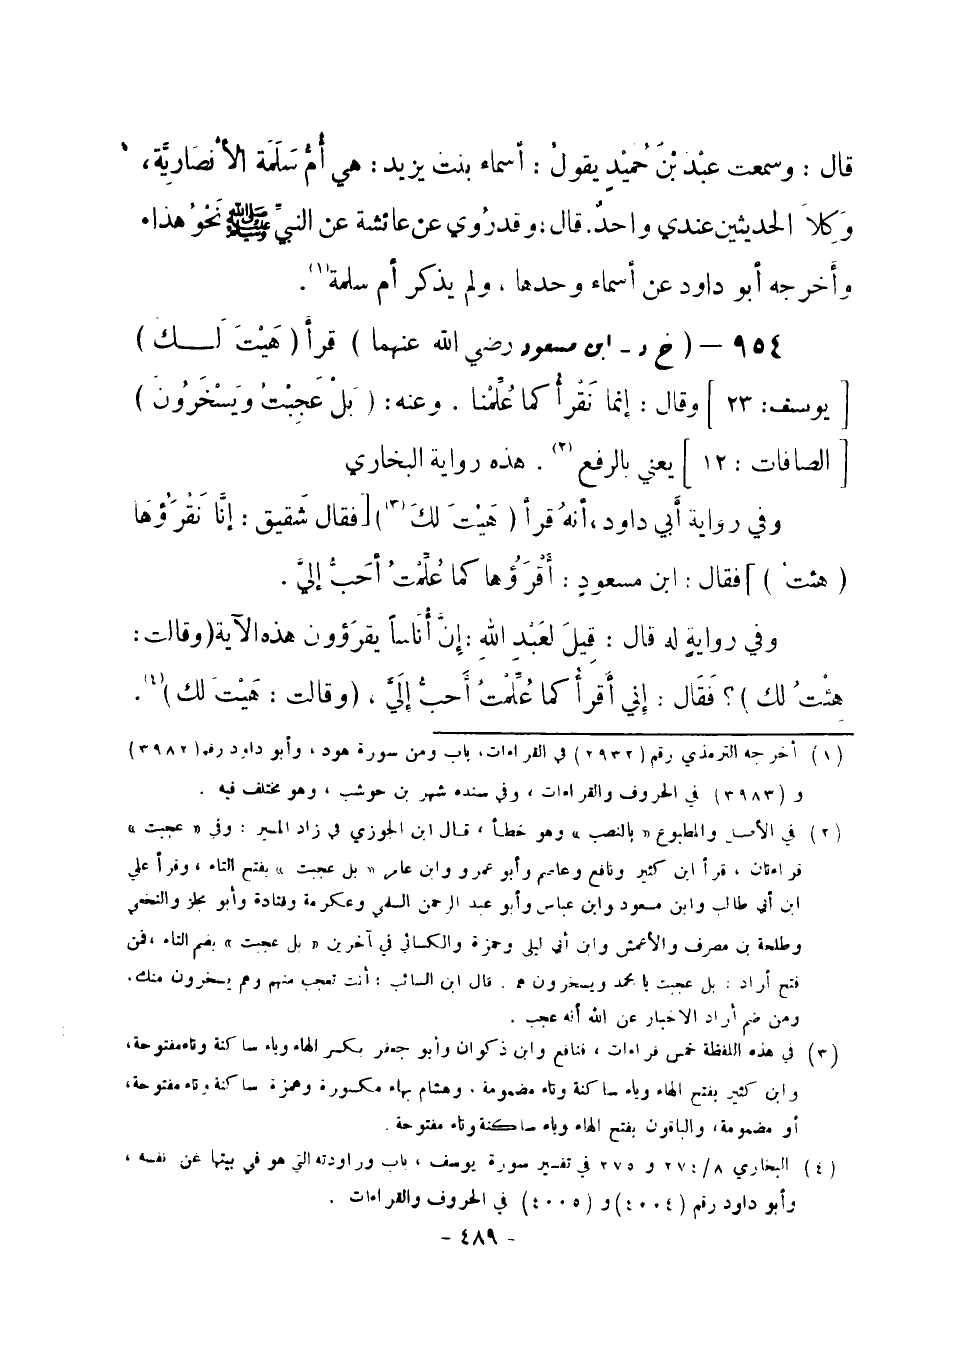 قال : وسمعت عبْدَ بْنَ حُمَيْدٍ يقولُ : أسماء بنت يزيد : هي أُمُّ سَلَمَة الأنصَاريَّة ،
وَكِلاَ الحديثين عندي واحدٌ. قال : وقد رُوي عن عائشة عن النبيِّ ﷺ نَحْوُ هذا .
وأخرجه أبو داود عن أسماء وحدها ، ولم يذكر أم سلمة (١) .
٩٥٤ – ( خ د – ابن مسعود رضي الله عنهما ) قرأَ ( هَيْتَ لَـكَ )
[ يوسف : ٢٣ ] وقال : إنما نَقْرأُ كما عُلِّمْنا . وعنه : ( بَلْ عَجِبْتُ وَيَسْخَرُونَ )
[ الصافات : ١٢ ] يعني بالرفع (٢) . هذه رواية البخاري
وفي رواية أبي داود ، أنه قرأ ( هَيْتَ لكَ (٣) ) [ فقال شَقيق : إنَّا نَقْرَؤُهَا
( هئتُ ) ] فقال : ابن مسعودٍ : أَقْرَؤُها كما عُلِّمْتُ أَحَبُّ إليَّ .
وفي روايةٍ له قال : قِيلَ لعَبْدِ اللهِ : إنَّ أُنَاساً يقرَؤون هذه الآية ( وقالت :
هِئْتُ لك ) ؟ فَقَال : إني أَقرأُ كما عُلِّمْتُ أَحبُّ إلَيَّ ، ( وقالت : هَيْتَ لك ) (٤) .
(١) أخرجه الترمذي رقم (٢٩٣٢) في القراءات ، باب ومن سورة هود ، وأبو داود رقم (٣٩٨٢)
و (٣٩٨٣) في الحروف والقراءات ، وفي سنده شهر بن حوشب ، وهو مختلف فيه .
(٢) في الأصل والمطبوع « بالنصب » وهو خطأ ، قال ابن الجوزي في زاد المسير : وفي « عجبت »
قراءتان ، قرأ ابن كثير ونافع وعاصم وأبو عمرو وابن عامر « بل عجبت » بفتح التاء ، وقرأ علي
ابن أبي طالب وابن مسعود وابن عباس وأبو عبد الرحمن السلمي وعكرمة وقتادة وأبو مجلز والنخعي
وطلحة بن مصرف والأعمش وابن أبي ليلى وحمزة والكسائي في آخرين « بل عجبت » بضم التاء ، فمن
فتح أراد : بل عجبت يا محمد ويسخرون هم . قال ابن السائب : أنت تعجب منهم وهم يسخرون منك .
ومن ضم أراد الاخبار عن الله أنه عجب .
(٣) في هذه اللفظة خمس قراءات ، فنافع وابن ذكوان وأبو جعفر بكسر الهاء وياء ساكنة وتاء مفتوحة ،
وابن كثير بفتح الهاء وياء ساكنة وتاء مضمومة . وهشام بهاء مكسورة وهمزة ساكنة وتاء مفتوحة ،
أو مضمومة ، والباقون بفتح الهاء وياء ساكنة وتاء مفتوحة .
(٤) البخاري ٨/٢٧٤ و ٢٧٥ في تفسير سورة يوسف ، باب وراودته التي هو في بيتها عن نفسه ،
وأبو داود رقم (٤٠٠٤) و (٤٠٠٥) في الحروف والقراءات .
- ٤٨٩ -